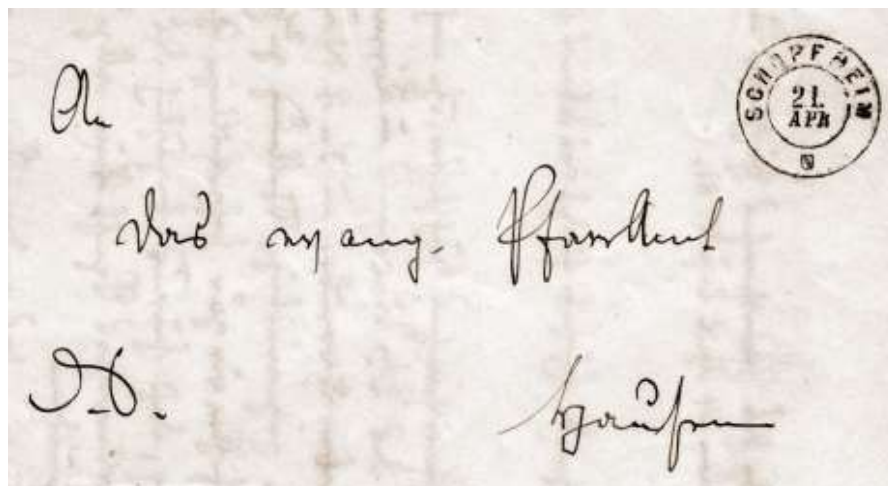 An
SCHOPFHEIM
21.
APR
das evang. Pfarramt
D. S.
Hausen